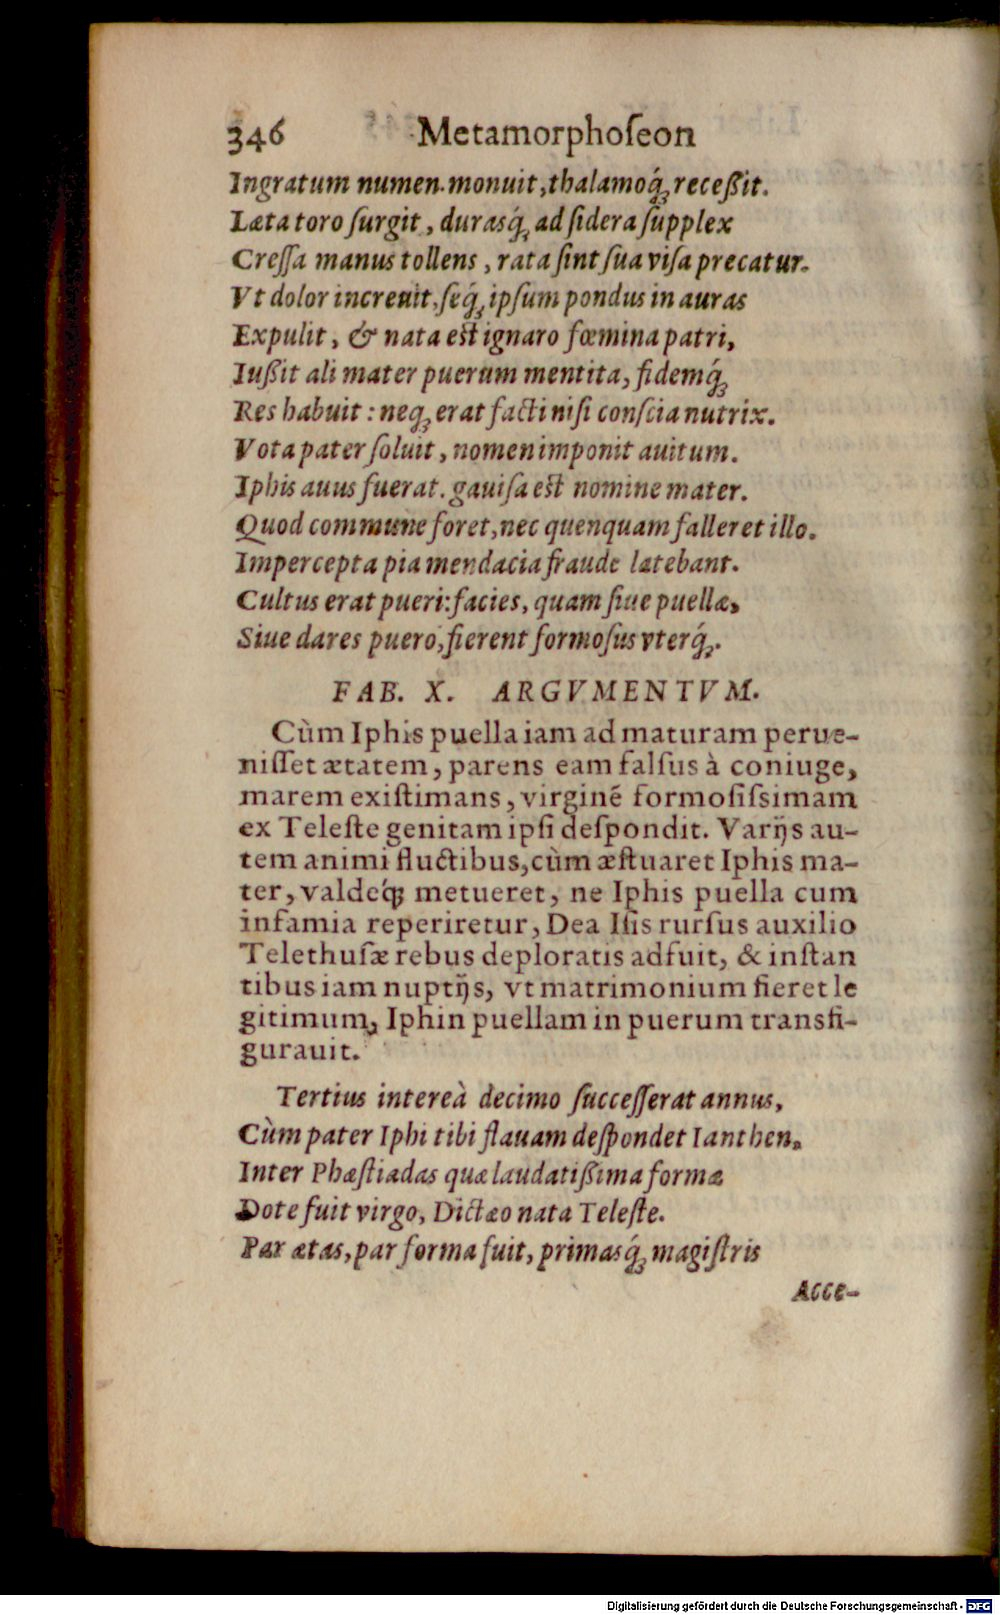 346 Metamorphoſeon
Ingratum numen. monuit, thalamoq́ꝫ receßit.
Læta toro ſurgit, durasq́ꝫ ad ſidera ſupplex
Creſſa manus tollens, rata ſint ſua viſa precatur.
Vt dolor increuit, ſeq́ꝫ ipſum pondus in auras
Expulit, & nata eſt ignaro fœmina patri,
Iußit ali mater puerum mentita, fidemq́ꝫ
Res habuit: neqꝫ erat facti niſi conſcia nutrix.
Vota pater ſoluit, nomen imponit auitum.
Iphis auus fuerat. gauiſa eſt nomine mater.
Quod commune foret, nec quenquam falleret illo.
Impercepta pia mendacia fraude latebant.
Cultus erat pueri: facies, quam ſiue puellæ,
Siue dares puero, fierent formoſus vterq́ꝫ.
FAB. X. ARGVMENTVM.
Cùm Iphis puella iam ad maturam perue-
niſſet ætatem, parens eam falſus à coniuge,
marem exiſtimans, virginẽ formoſiſsimam
ex Teleſte genitam ipſi deſpondit. Varijs au-
tem animi fluctibus, cùm æſtuaret Iphis ma-
ter, valdeq́ꝫ metueret, ne Iphis puella cum
infamia reperiretur, Dea Iſis rurſus auxilio
Telethuſæ rebus deploratis adfuit, & inſtan
tibus iam nuptijs, vt matrimonium fieret le
gitimum, Iphin puellam in puerum transfi-
gurauit.
Tertius intereà decimo ſucceſſerat annus,
Cùm pater Iphi tibi flauam deſpondet Ianthen,
Inter Phæſtiadas quæ laudatißima formæ
Dote fuit virgo, Dictæo nata Teleſte.
Par ætas, par forma fuit, primasq́ꝫ magiſtris
Acce-
Digitalisierung gefördert durch die Deutsche Forschungsgemeinschaft - DFG